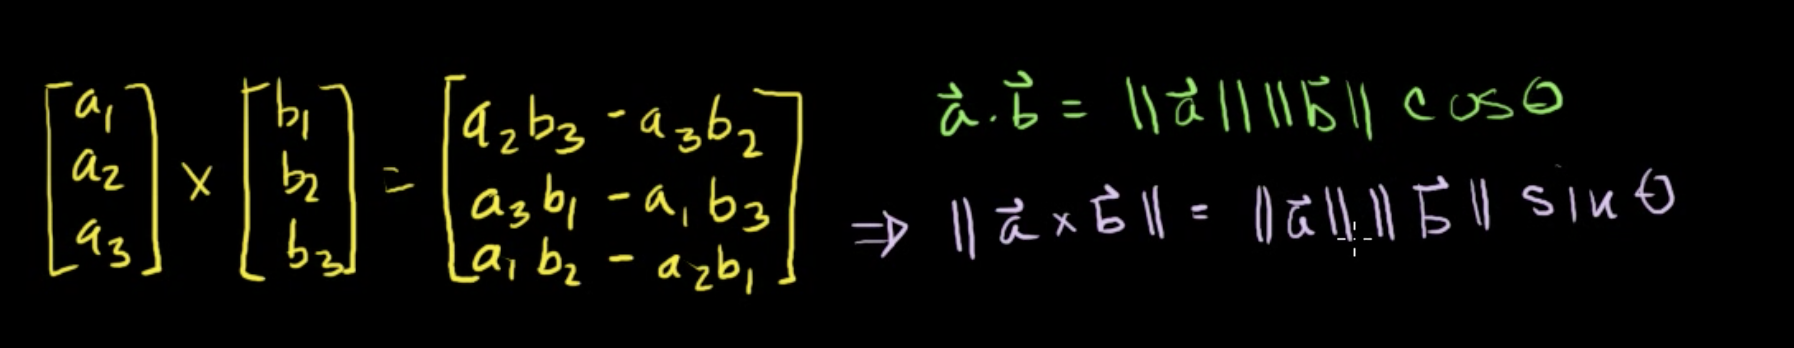 [a₁ a₂ a₃] × [b₁ b₂ b₃] = [a₂b₃ - a₃b₂ a₃b₁ - a₁b₃ a₁b₂ - a₂b₁]
a⃗ · b⃗ = ||a⃗|| ||b⃗|| cosθ
⇒ ||a⃗ × b⃗|| = ||a⃗|| ||b⃗|| sinθ